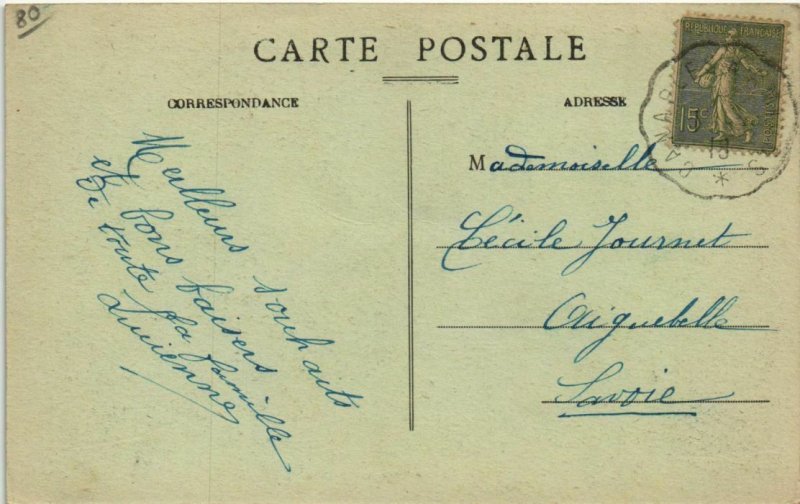 80
CARTE POSTALE
CORRESPONDANCE
ADRESSE
REPUBLIQUE FRANÇAISE
15c
Meilleurs souhaits
et bons baisers
De toute la famille
Lucienne
Mademoiselle
Cécile Journet
Aiguebelle
Savoie